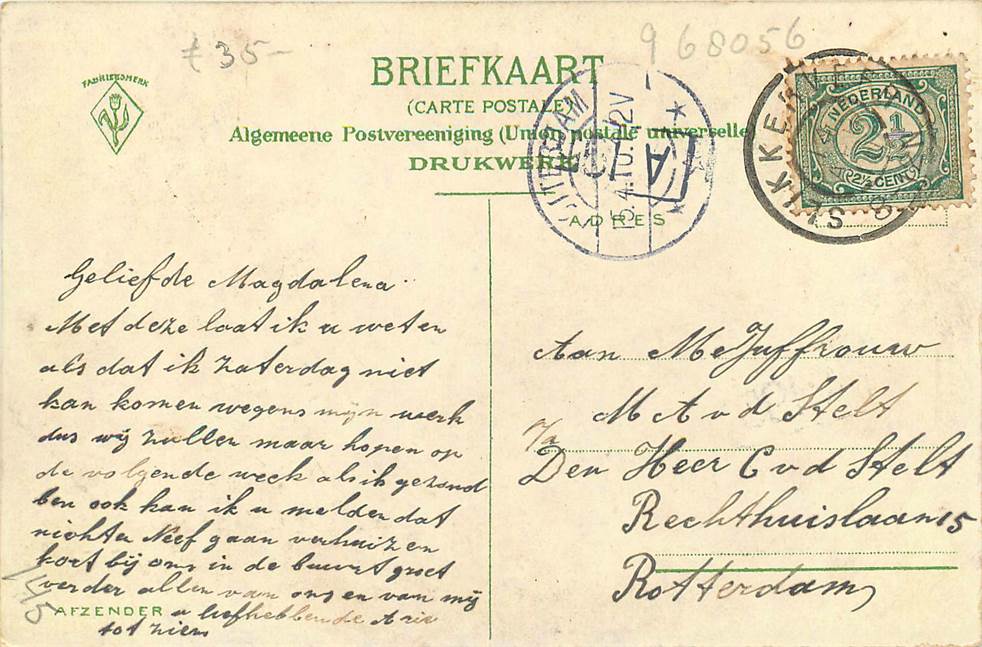 £35-
968056
FABRIEKSMERK
BRIEFKAART
(CARTE POSTALE)
Algemeene Postvereeniging (Union postale universelle)
DRUKWERK
ADRES
NEDERLAND
2½
2½ CENT
SLIKKERVEER
Geliefde Magdalena
Met deze laat ik u weten
als dat ik zaterdag niet
kan komen wegens mijn werk
dus wij zullen maar hopen op
de volgende week als ik gezond
ben ook kan ik u melden dat
nichten Neef gaan verhuizen
kort bij ons in de buurt groet
verder allen van ons en van mij
AFZENDER u liefhebbende Arie
tot ziens
145
Aan MeJuffrouw
M A v d Stelt
p/a
Den Heer C v d Stelt
Rechthuislaan 15
Rotterdam